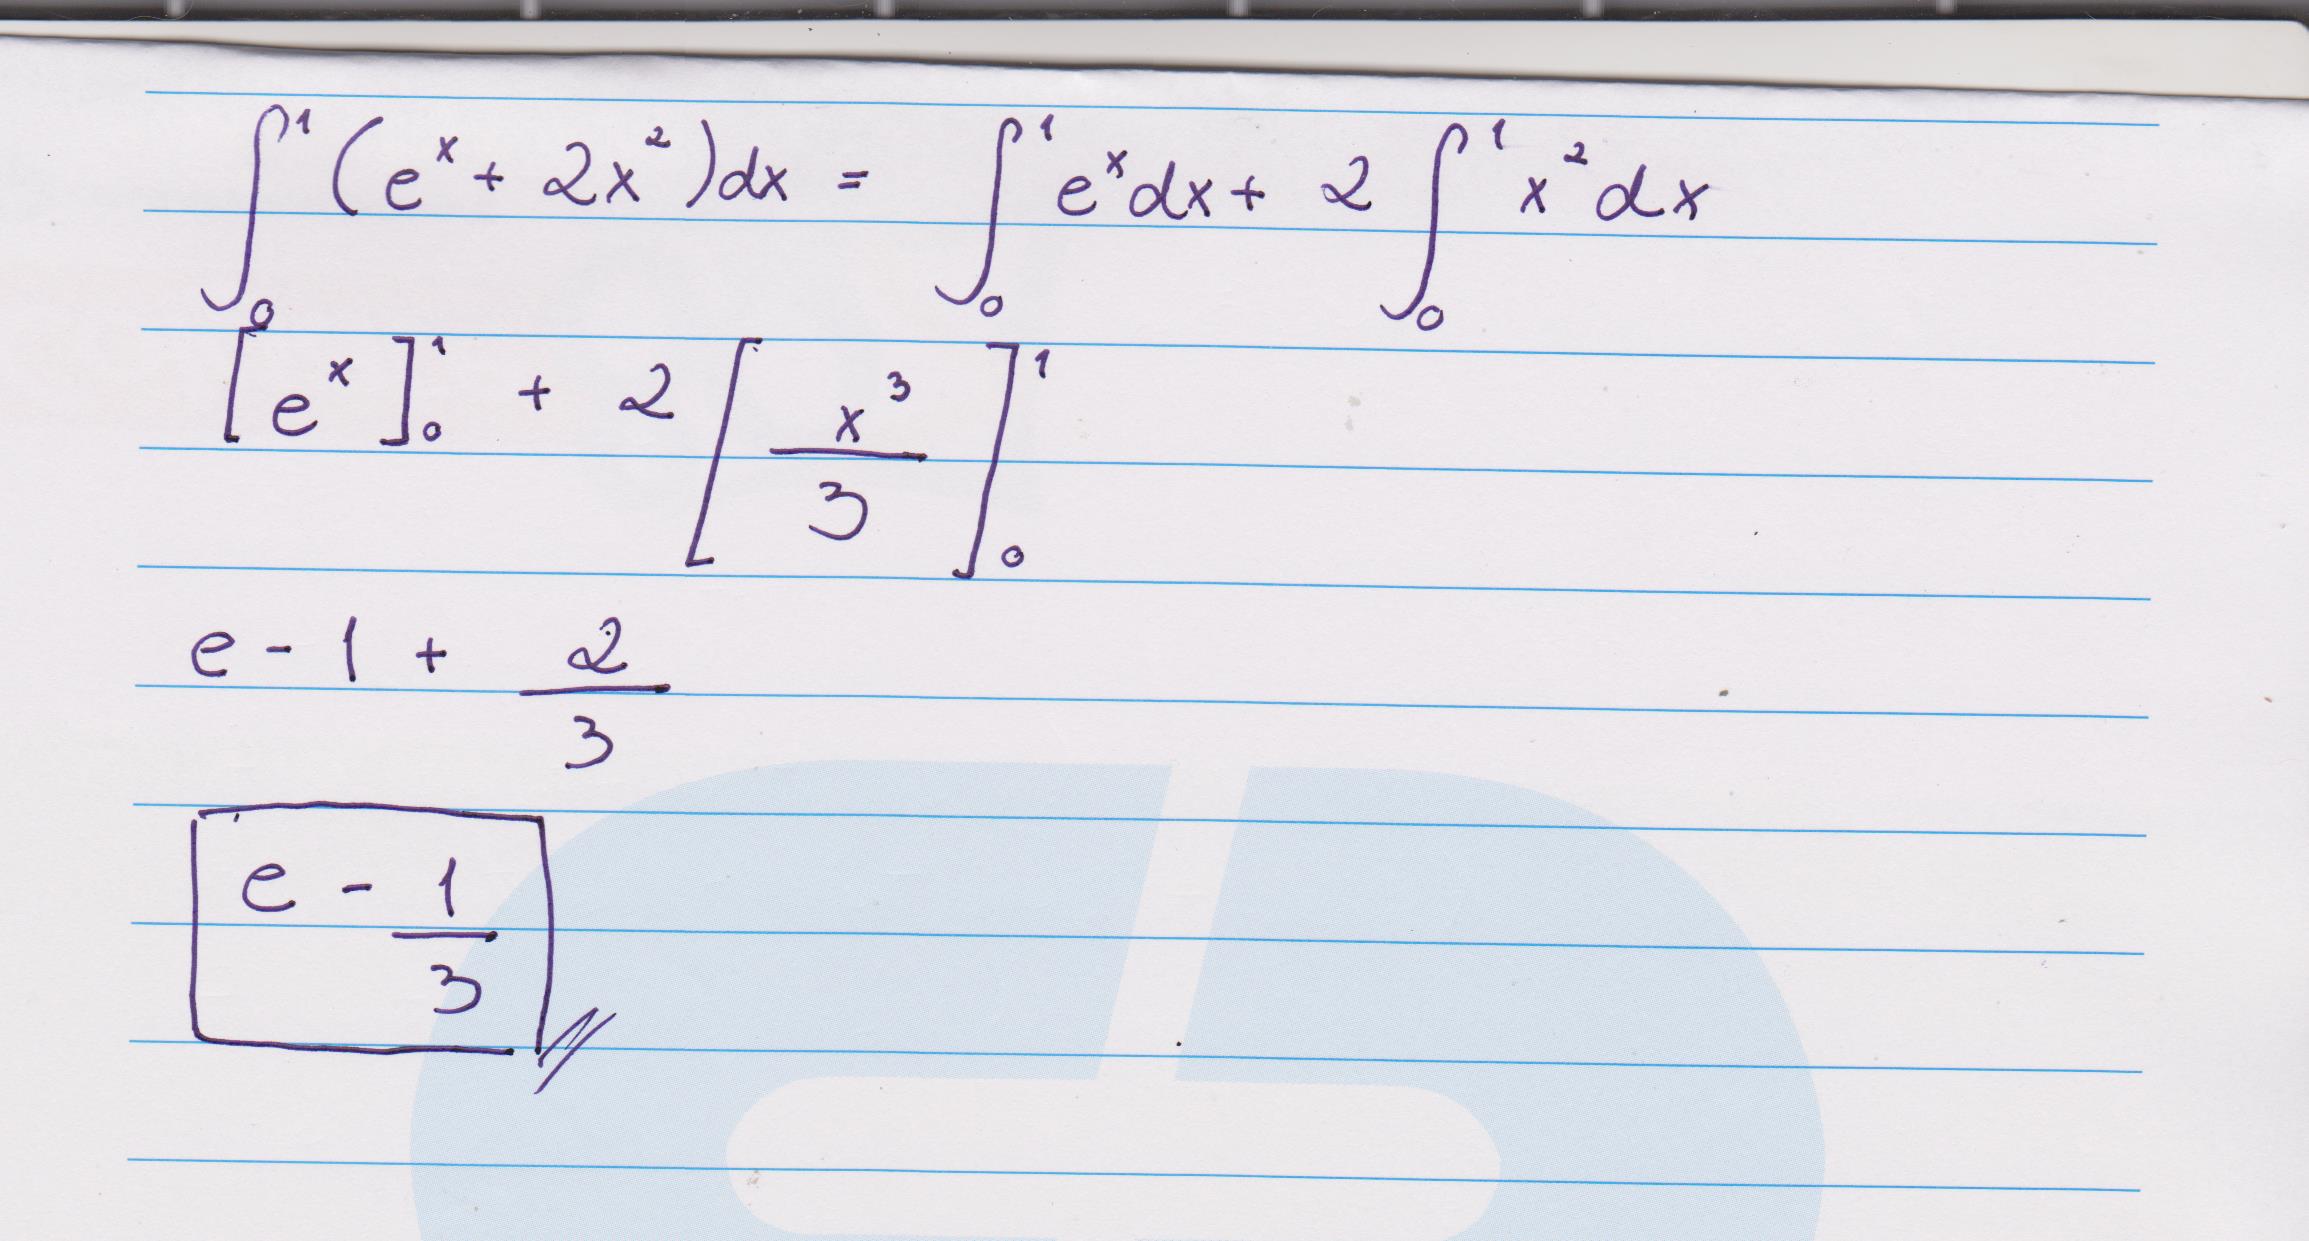 ∫₀¹ (eˣ + 2x²) dx = ∫₀¹ eˣ dx + 2 ∫₀¹ x² dx
[eˣ]₀¹ + 2 [x³/3]₀¹
e - 1 + 2/3
e - 1/3